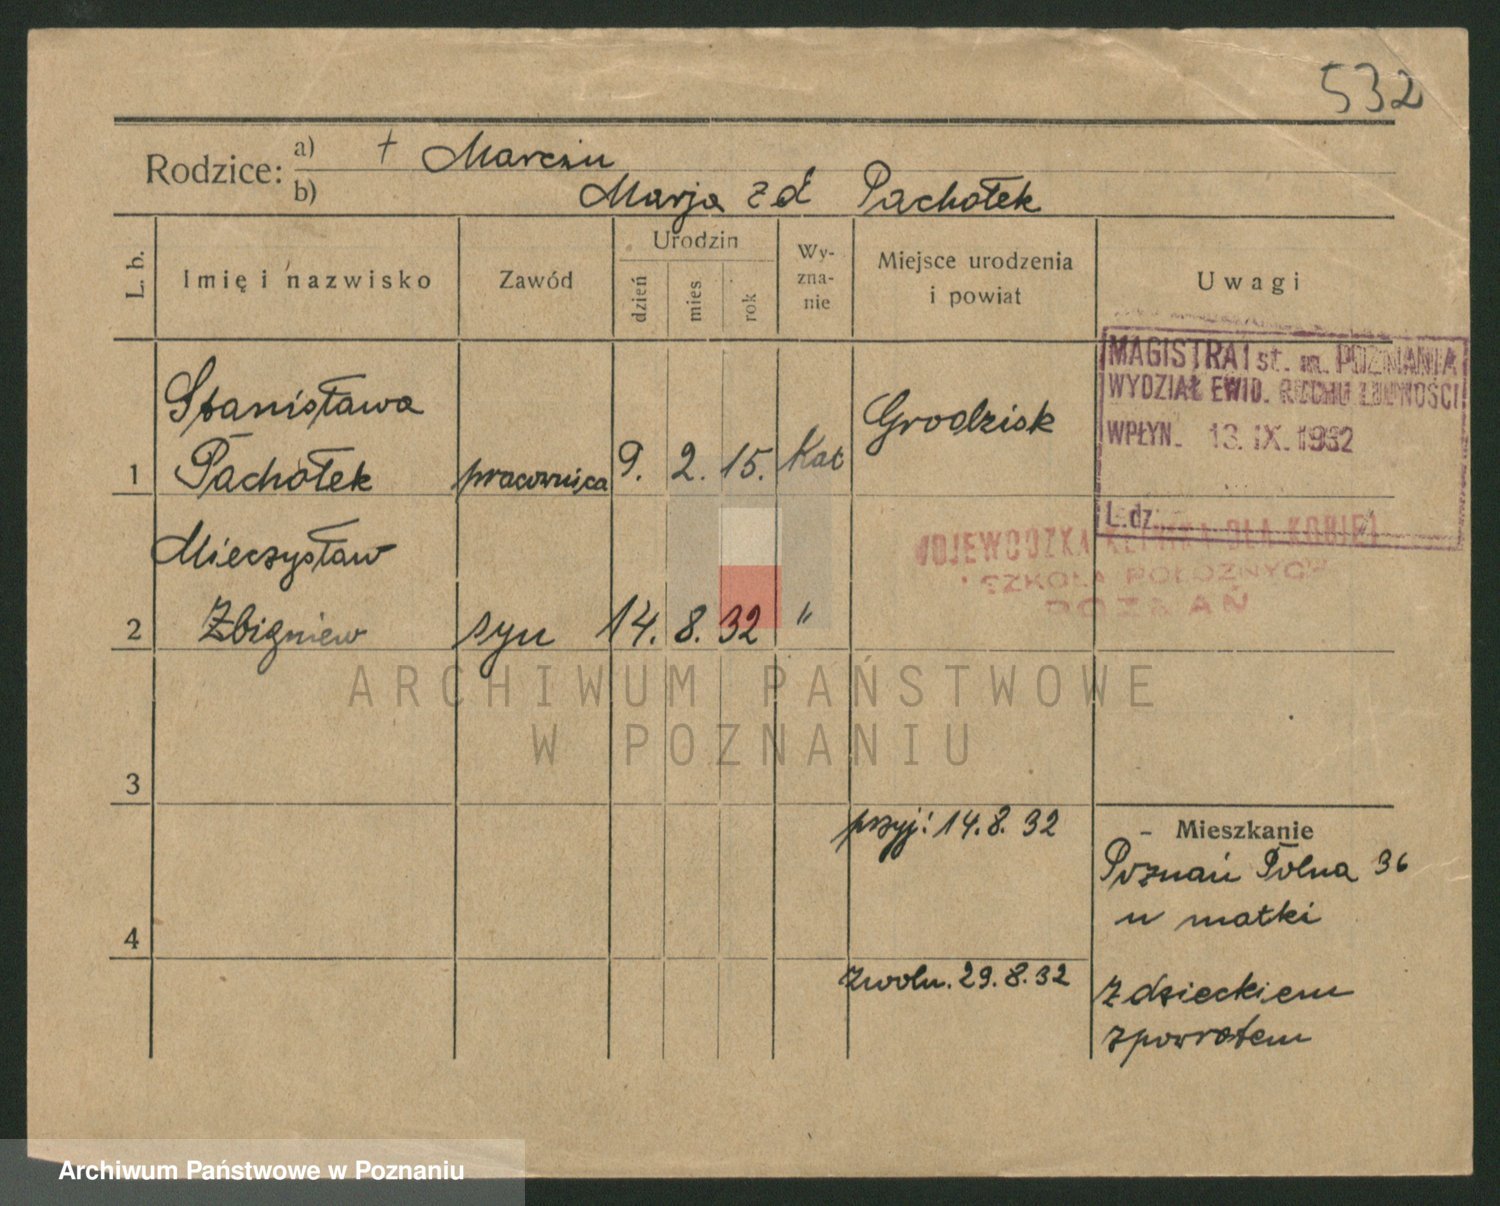 532
Rodzice: a) + Marcin
b) Marja z d Pachołek
L. b.
Imię i nazwisko
Zawód
Urodzin
dzień
mies
rok
Wy-
zna-
nie
Miejsce urodzenia
i powiat
Uwagi
MAGISTRAT st. m. POZNANIA
WYDZIAŁ EWID. RUCHU LUDNOŚCI
WPŁYN. 13. IX. 1932
L.dz.
Stanisława
1 Pachołek pracownica 9. 2. 15. Kat Grodzisk
WOJEWÓDZKA KLINIKA DLA KOBIET
I SZKOŁA POŁOŻNYCH
POZNAŃ
Mieczysław
2 Zbigniew syn 14. 8. 32 "
ARCHIWUM PAŃSTWOWE
W POZNANIU
3
przyj: 14. 8. 32
- Mieszkanie
Poznań Polna 36
u matki
4
zwoln. 29. 8. 32
z dzieckiem
zpowrotem
Archiwum Państwowe w Poznaniu